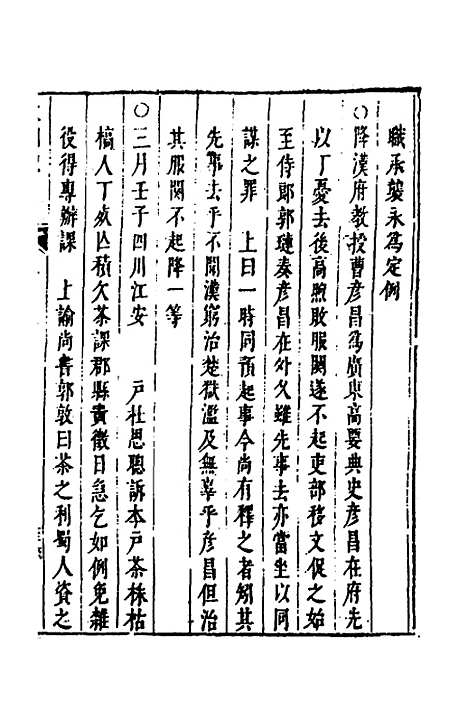 職承襲永爲定例
○降漢府教授曹彦昌爲廣東高要典史彦昌在府先
以丁憂去後高煦敗服闋遂不起吏部移文促之始
至侍郎郭璡奏彦昌在外久雖先事去亦當坐以同
謀之罪　上曰一時同預起事今尚有釋之者矧其
先事去乎不聞漢窮治楚獄濫及無辜乎彦昌但治
其服闋不起降一等
○三月壬子四川江安　戸杜思聰訴本戸茶株枯
槁人丁死亡積欠茶課郡縣責徵日急乞如例免雜
役得專辦課　上諭尚書郭敦曰茶之利蜀人資之